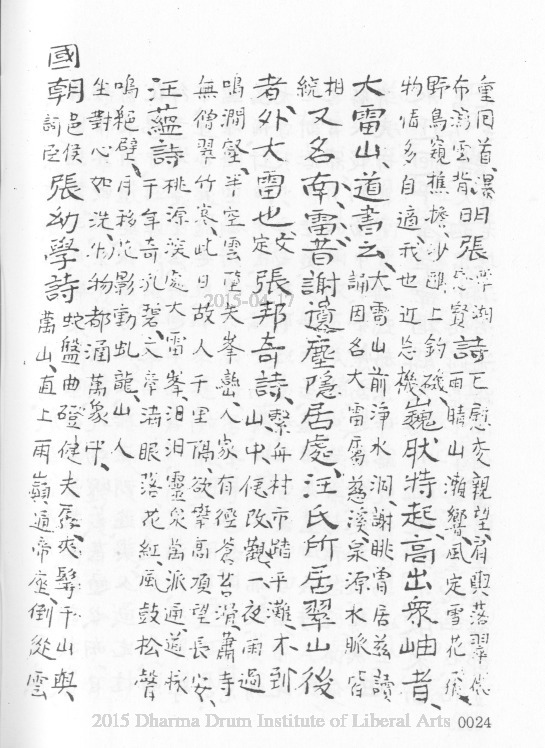 重囘首、瀑
布瀉雲背
明張
詩
已慰交親望、肩輿落翠微
雨晴山瀨響、風定雪花飛
野鳥窺樵擔、沙鷗上釣磯
物情多自適、我也近忘機
巍狀特起、高出衆岫者、
大雷山、道書云、
大雷山前淨水洞、謝眺曾居茲讀
誦因名大雷屬慈溪、泉源水脈皆
相
繞
又名南雷、昔謝遺塵隱居處、汪氏所居翠山後
者外大雷也、
文
定
張邦奇詩、
繫舟村市踏平灘、不到
山中便改觀、一夜雨過
鳴澗壑、半空雲墮失峯巒、人家有徑蒼苔滑、蕭寺
無僧翠竹寒、此日故人千里隔、欲攀高頂望長安、
汪蘊詩
桃源深處大雷峯、汩汩靈泉萬派通、
千年奇孔碧、文章滿眼落花紅、風鼓松聲
鳴絕壁、月移花影動虬龍、山人
坐對心如洗、物物都涵萬象中、
國朝
邑侯
詞臣
張幼學詩
蛇盤曲磴健夫孱、爽髩千山與
萬山、直上兩巔逼帝座、倒從雲
2015-04-17
2015 Dharma Drum Institute of Liberal Arts 0024